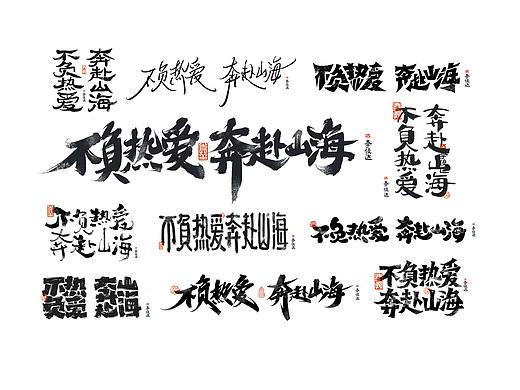 不负热爱
奔赴山海
不负热爱 奔赴山海
不负热爱 奔赴山海
不負热爱 奔赴山海
不負热爱
奔赴山海
不负热爱
奔赴山海
不负热爱奔赴山海
不负热爱 奔赴山海
不负热爱
奔赴山海
不負热爱 奔赴山海
不负热爱
奔赴山海